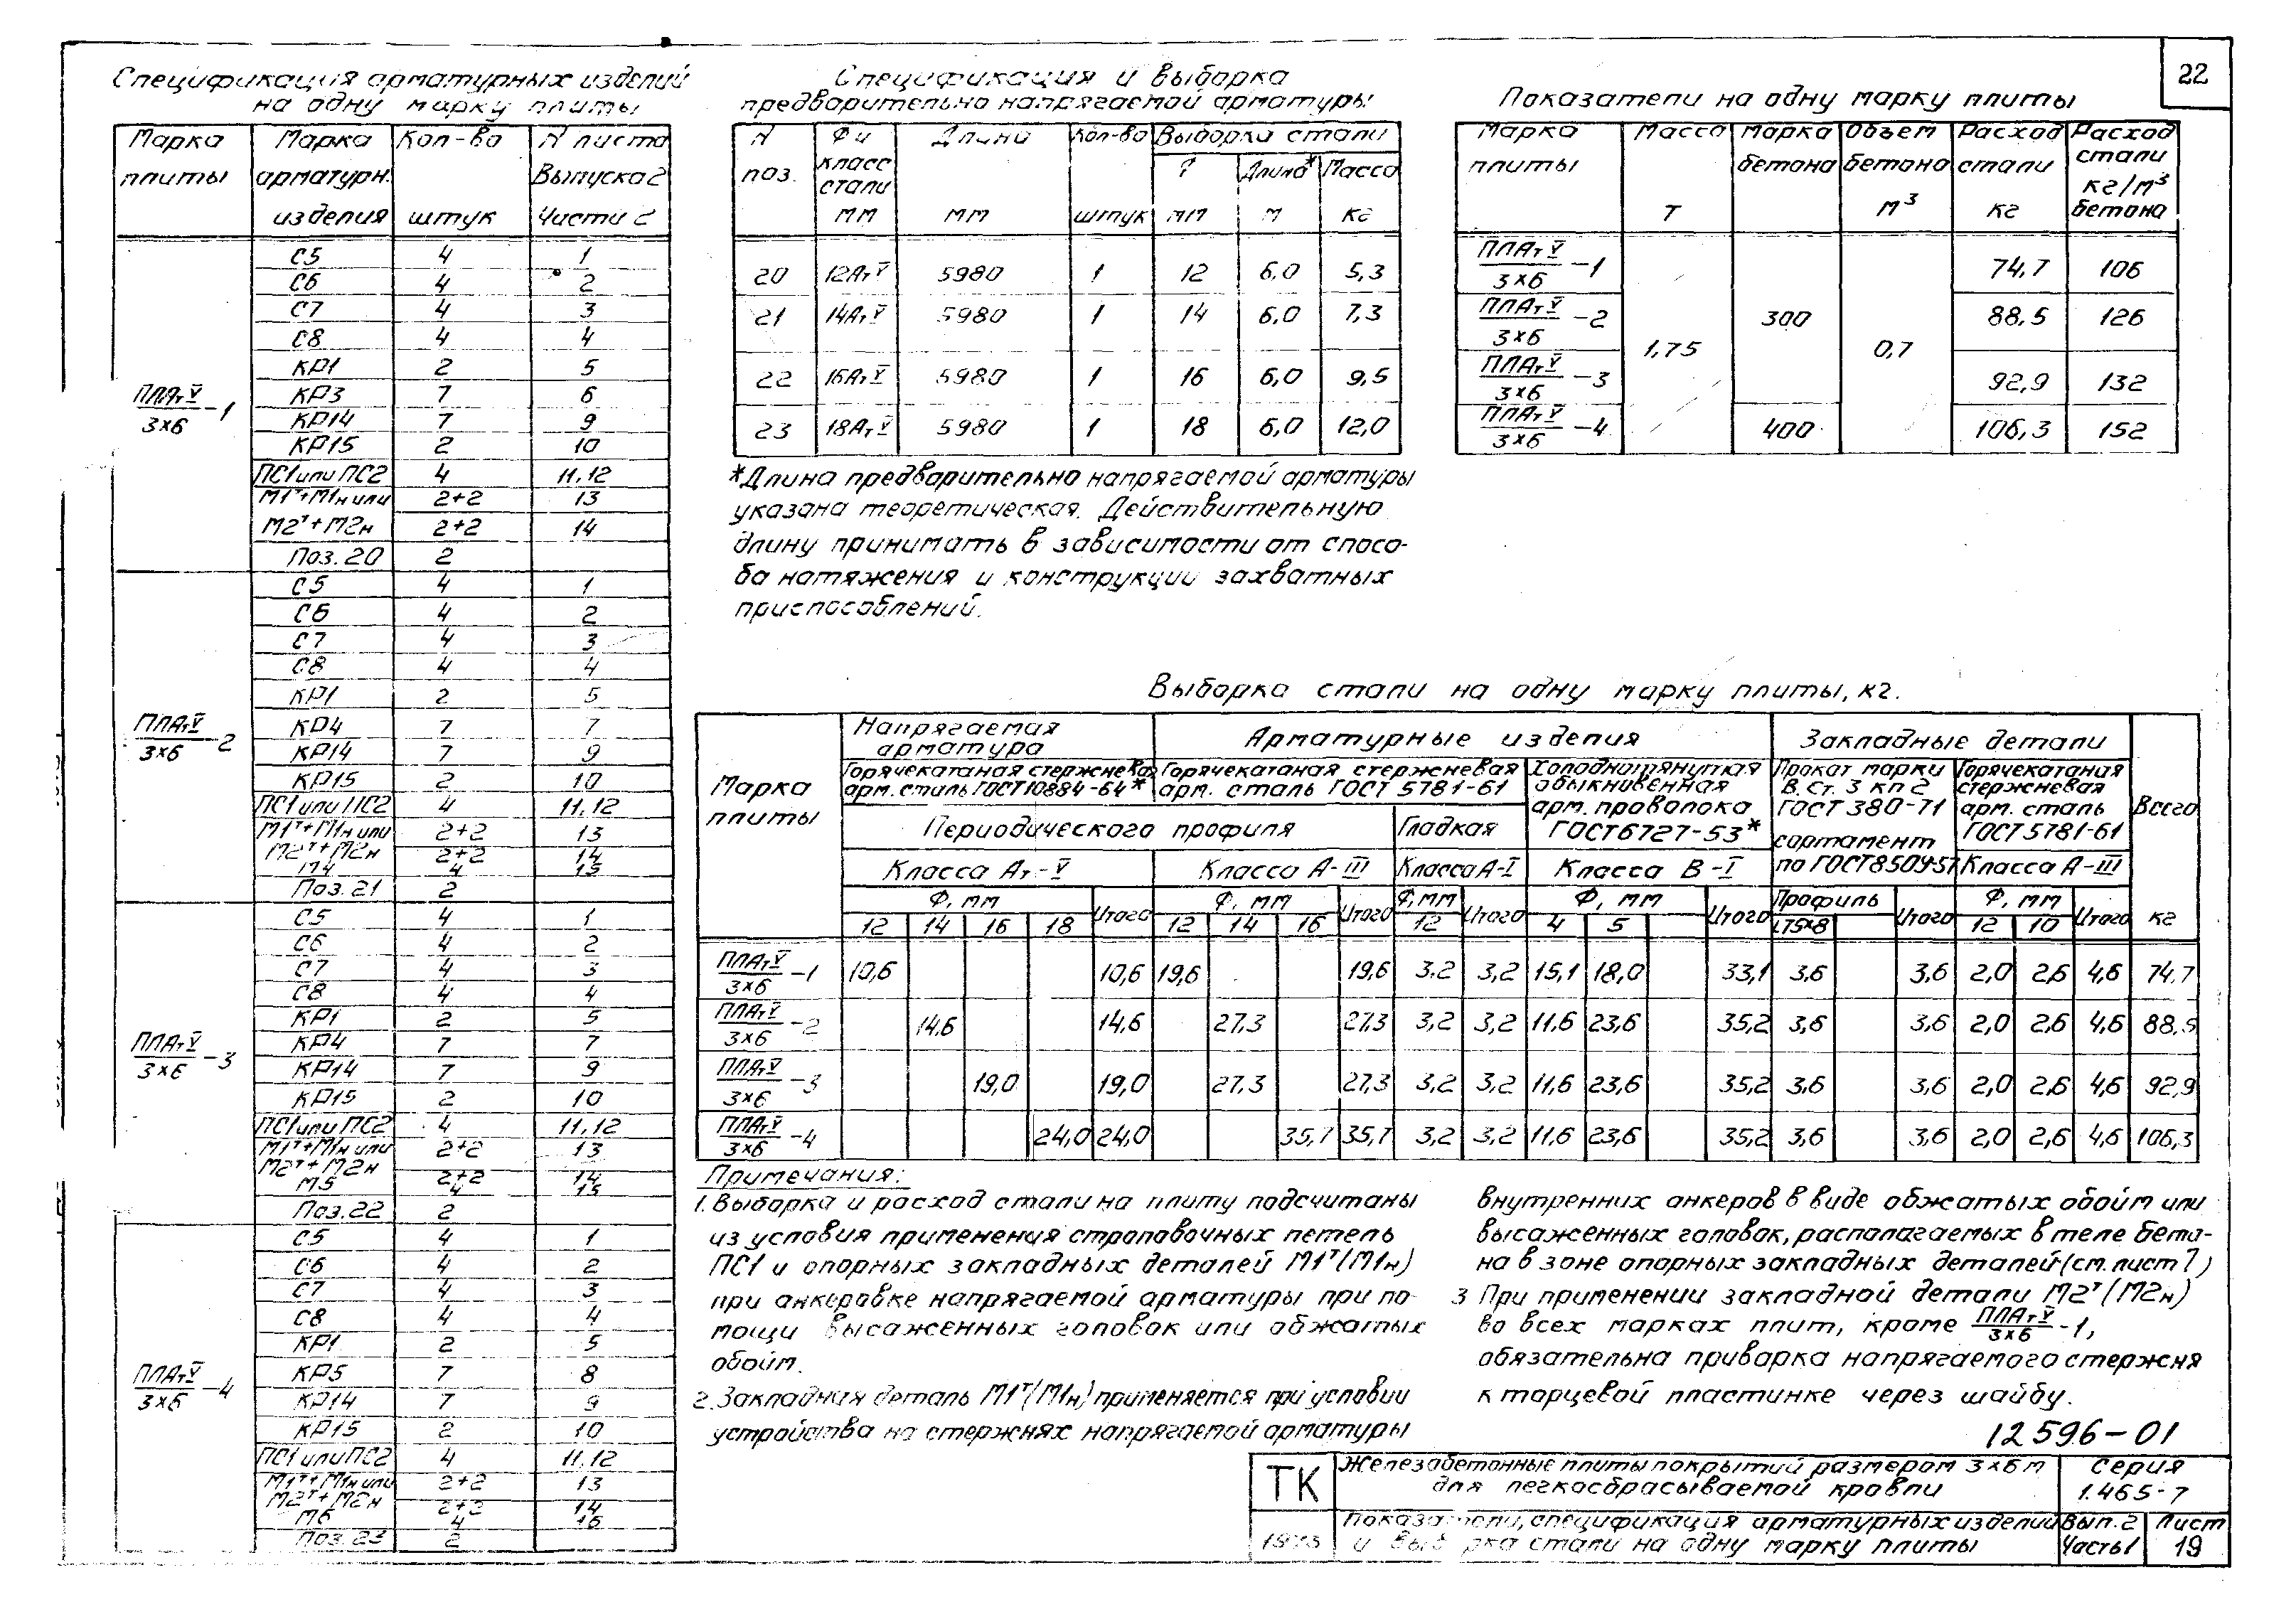 22
Спецификация арматурных изделий
на одну марку плиты
Марка плиты | Марка арматурн. изделия | Кол-во штук | N листа Выпуска 2 Части 2
ПЛАтV/3×6 -1
С5 4 1
С6 4 2
С7 4 3
С8 4 4
КР1 2 5
КР3 7 6
КР14 7 9
КР15 2 10
ПС1 или ПС2 4 11,12
М1т+М1н или 2+2 13
М2т+М2н 2+2 14
Поз.20 2
ПЛАтV/3×6 -2
С5 4 1
С6 4 2
С7 4 3
С8 4 4
КР1 2 5
КР4 7 7
КР14 7 9
КР15 2 10
ПС1 или ПС2 4 11,12
М1т+М1н или 2+2 13
М2т+М2н 2+2 14
М4 4 15
Поз.21 2
ПЛАтV/3×6 -3
С5 4 1
С6 4 2
С7 4 3
С8 4 4
КР1 2 5
КР4 7 7
КР14 7 9
КР15 2 10
ПС1 или ПС2 4 11,12
М1т+М1н или 2+2 13
М2т+М2н 2+2 14
М5 4 15
Поз.22 2
ПЛАтV/3×6 -4
С5 4 1
С6 4 2
С7 4 3
С8 4 4
КР1 2 5
КР5 7 8
КР14 7 9
КР15 2 10
ПС1 или ПС2 4 11,12
М1т+М1н или 2+2 13
М2т+М2н 2+2 14
М6 4 16
Поз.23 2
Спецификация и выборка
предварительно напрягаемой арматуры
N поз. | Ф и класс стали мм | Длина мм | Кол-во штук | Выборка стали
мм | Длина* м | Масса кг
20 12АтV 5980 1 12 6,0 5,3
21 14АтV 5980 1 14 6,0 7,3
22 16АтV 5980 1 16 6,0 9,5
23 18АтV 5980 1 18 6,0 12,0
*Длина предварительно напрягаемой арматуры
указана теоретическая. Действительную
длину принимать в зависимости от спосо-
ба натяжения и конструкции захватных
приспособлений.
Показатели на одну марку плиты
Марка плиты | Масса т | Марка бетона | Объем бетона м³ | Расход стали кг | Расход стали кг/м³ бетона
ПЛАтV/3×6 -1 74,7 106
ПЛАтV/3×6 -2 88,5 126
1,75 300 0,7
ПЛАтV/3×6 -3 92,9 132
ПЛАтV/3×6 -4 400 106,3 152
Выборка стали на одну марку плиты, кг.
Марка плиты | Напрягаемая арматура | Арматурные изделия | Закладные детали | Всего кг
Горячекатаная стержневая арм. сталь ГОСТ 10884-64* | Горячекатаная стержневая арм. сталь ГОСТ 5781-61 | Холоднотянутая обыкновенная арм. проволока ГОСТ 6727-53* | Прокат марки В.Ст.3 кп 2 ГОСТ 380-71 сортамент по ГОСТ 8509-57 | Горячекатаная стержневая арм. сталь ГОСТ 5781-61
Периодического профиля | Гладкая
Класса Ат-V | Класса А-III | Класса А-I | Класса В-I | Класса А-III
Ф, мм | Итого | Ф, мм | Итого | Ф, мм | Итого | Ф, мм | Итого | Профиль | Итого | Ф, мм | Итого
12 14 16 18 | 12 14 16 | 12 | 4 5 | L75×8 | 12 10
ПЛАтV/3×6 -1 10,6 10,6 19,6 19,6 3,2 3,2 15,1 18,0 33,1 3,6 3,6 2,0 2,6 4,6 74,7
ПЛАтV/3×6 -2 14,6 14,6 27,3 27,3 3,2 3,2 11,6 23,6 35,2 3,6 3,6 2,0 2,6 4,6 88,5
ПЛАтV/3×6 -3 19,0 19,0 27,3 27,3 3,2 3,2 11,6 23,6 35,2 3,6 3,6 2,0 2,6 4,6 92,9
ПЛАтV/3×6 -4 24,0 24,0 35,7 35,7 3,2 3,2 11,6 23,6 35,2 3,6 3,6 2,0 2,6 4,6 106,3
Примечания:
1. Выборка и расход стали на плиту подсчитаны
из условия применения строповочных петель
ПС1 и опорных закладных деталей М1т(М1н)
при анкеровке напрягаемой арматуры при по-
мощи высаженных головок или обжатых
обойм.
2. Закладная деталь М1т(М1н) применяется при условии
устройства на стержнях напрягаемой арматуры
внутренних анкеров в виде обжатых обойм или
высаженных головок, располагаемых в теле бето-
на в зоне опорных закладных деталей (см. лист 7)
3 При применении закладной детали М2т(М2н)
во всех марках плит, кроме ПЛАтV/3×6 -1,
обязательна приварка напрягаемого стержня
к торцевой пластинке через шайбу.
12596-01
ТК
Железобетонные плиты покрытий размером 3×6м
для легкосбрасываемой кровли
Серия
1.465-7
Показатели, спецификация арматурных изделий
и выборка стали на одну марку плиты
Вып.2
Часть 1
Лист
19